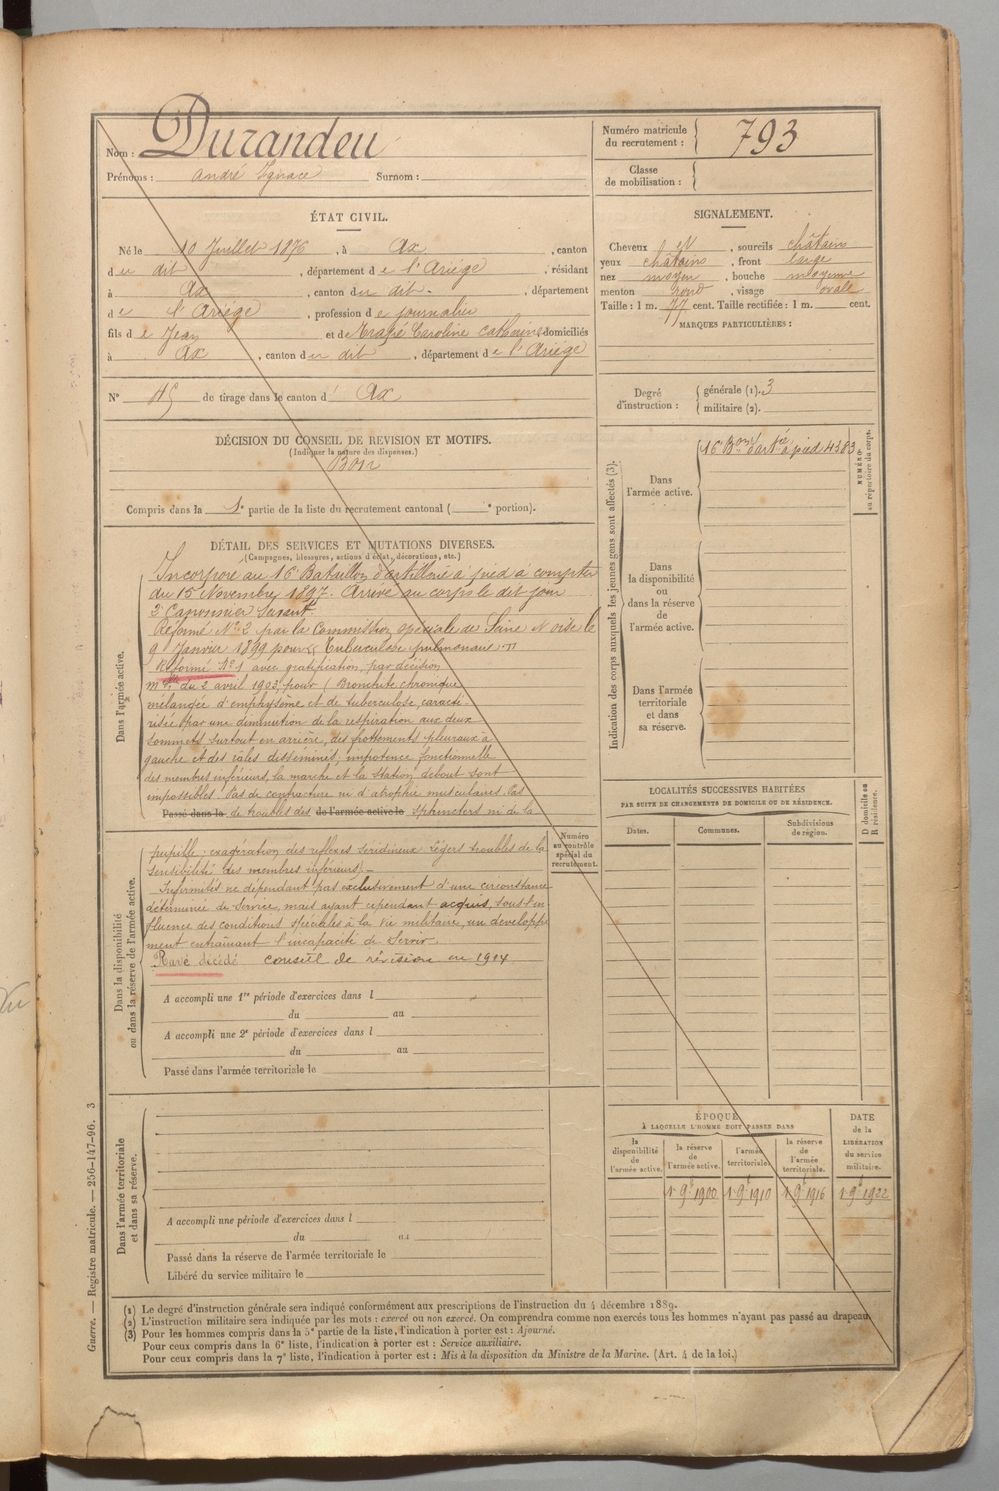 Nom : Durandeu
Prénoms : André Ignace Surnom :
Numéro matricule du recrutement : 793
Classe de mobilisation :
ÉTAT CIVIL.
Né le 10 Juillet 1876, à Ax, canton
du dit, département de l'Ariège, résidant
à Ax, canton du dit., département
de l'Ariège, profession de journalier
fils de Jean et de Caroline domiciliés
à Ax, canton du dit, département de l'Ariège
N° 45 de tirage dans le canton d' Ax
SIGNALEMENT.
Cheveux et, sourcils châtains
yeux châtains, front large
nez moyen, bouche moyenne
menton rond, visage ovale
Taille : 1 m. 77 cent. Taille rectifiée : 1 m. cent.
MARQUES PARTICULIÈRES :
Degré d'instruction : générale (1). 3
militaire (2).
DÉCISION DU CONSEIL DE REVISION ET MOTIFS.
(Indiquer la nature des dispenses.)
Bon
Compris dans la 1e partie de la liste du recrutement cantonal ( e portion).
DÉTAIL DES SERVICES ET MUTATIONS DIVERSES.
(Campagnes, blessures, actions d'éclat, décorations, etc.)
Dans l'armée active.
Incorporé au 16e Bataillon d'artillerie à pied à compter
du 15 Novembre 1897. Arrivé au corps le dit jour
2e Canonnier Servant.
Réformé N° 2 par la Commission spéciale de Seine et Oise le
9 Janvier 1899 pour « Tuberculose pulmonaire »
Réformé N° 1 avec gratification, par décision
mlle du 2 avril 1903, pour ( Bronchite chronique
mélangée d'emphysème et de tuberculose, caracté-
risée par une diminution de la respiration aux deux
sommets surtout en arrière, des frottements pleuraux à
gauche et des râles disséminés; impotence fonctionnelle
des membres inférieurs, la marche et la station debout sont
impossibles. Pas de contracture ni d'atrophie musculaires, pas
Passé dans la de troubles des de l'armée active le sphincters ni de la
Dans la disponibilité ou dans la réserve de l'armée active.
Numéro au contrôle spécial du recrutement.
pupille; exagération des réflexes légers troubles de la
sensibilité des membres inférieurs) -
Infirmités ne dépendant pas exclusivement d'une circonstance
déterminée de service, mais ayant cependant acquis, sous l'in
fluence des conditions spéciales à la vie militaire, un développe
ment entraînant l'incapacité de servir.
Rayé décédé conseil de révision en 1914
A accompli une 1re période d'exercices dans l
du au
A accompli une 2e période d'exercices dans l
du au
Passé dans l'armée territoriale le
Dans l'armée territoriale et dans sa réserve.
A accompli une période d'exercices dans l
du au
Passé dans la réserve de l'armée territoriale le
Libéré du service militaire le
Indication des corps auxquels les jeunes gens sont affectés (3).
NUMÉRO au répertoire du corps.
Dans l'armée active.
16e Bon d'artie à pied 4383
Dans la disponibilité ou dans la réserve de l'armée active.
Dans l'armée territoriale et dans sa réserve.
LOCALITÉS SUCCESSIVES HABITÉES
PAR SUITE DE CHANGEMENTS DE DOMICILE OU DE RÉSIDENCE.
Dates. Communes. Subdivisions de région.
D domicile ou R résidence.
ÉPOQUE
À LAQUELLE L'HOMME DOIT PASSER DANS
la disponibilité de l'armée active.
la réserve de l'armée active.
l'armée territoriale.
la réserve de l'armée territoriale.
DATE de la LIBÉRATION du service militaire.
1r 9e 1900 1r 9e 1910 1r 9e 1916 1r 9e 1922
(1) Le degré d'instruction générale sera indiqué conformément aux prescriptions de l'instruction du 4 décembre 1889.
(2) L'instruction militaire sera indiquée par les mots : exercé ou non exercé. On comprendra comme non exercés tous les hommes n'ayant pas passé au drapeau.
(3) Pour les hommes compris dans la 5e partie de la liste, l'indication à porter est : Ajourné.
Pour ceux compris dans la 6e liste, l'indication à porter est : Service auxiliaire.
Pour ceux compris dans la 7e liste, l'indication à porter est : Mis à la disposition du Ministre de la Marine. (Art. 4 de la loi.)
Guerre. — Registre matricule. — 256-147-96. 3